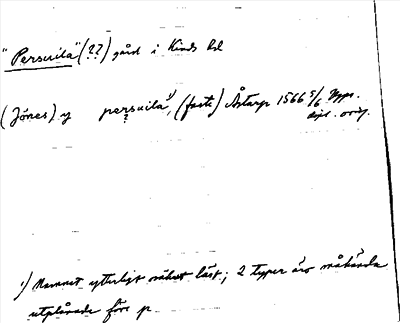 "Persuila" (??) gård i Kinds hd
(Jönes) y persuila¹⁾, (fasti) Åstarp 1566 5/6 Upps.
?
dipl. orig.
¹⁾ Namnet ytterligt osäkert läst; 2 typer äro måhända
utplånade före p